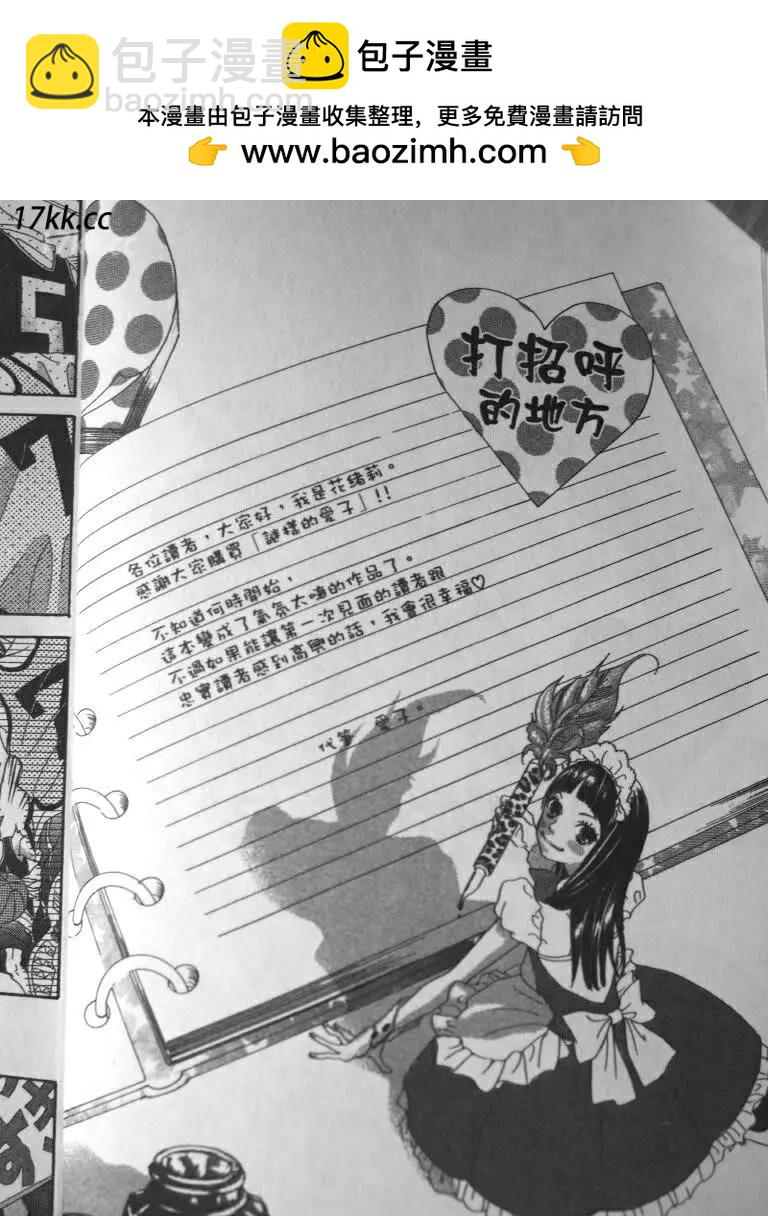 包子漫畫
baozimh.com
包子漫畫
本漫畫由包子漫畫收集整理，更多免費漫畫請訪問
👉 www.baozimh.com 👈
17kk.cc
打招呼
的地方
各位讀者，大家好，我是花緒莉。
感謝大家購買「謎樣的愛子」!!
不知道何時開始，
這本變成了氣氛太嗨的作品了。
不過如果能讓第一次見面的讀者跟
忠實讀者感到高興的話，我會很幸福♡
代筆 愛子。